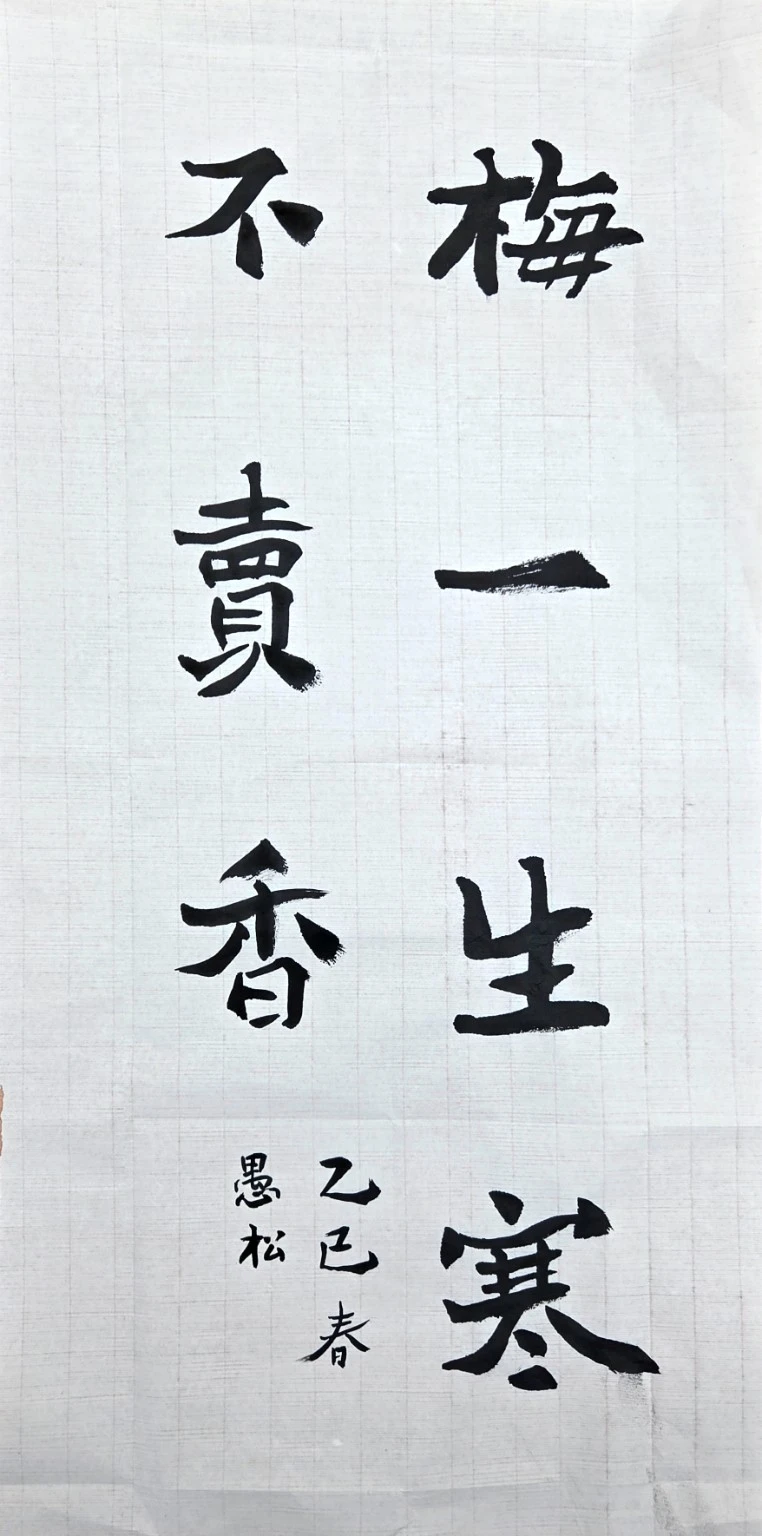 梅一生寒
不賣香
乙巳春
愚松